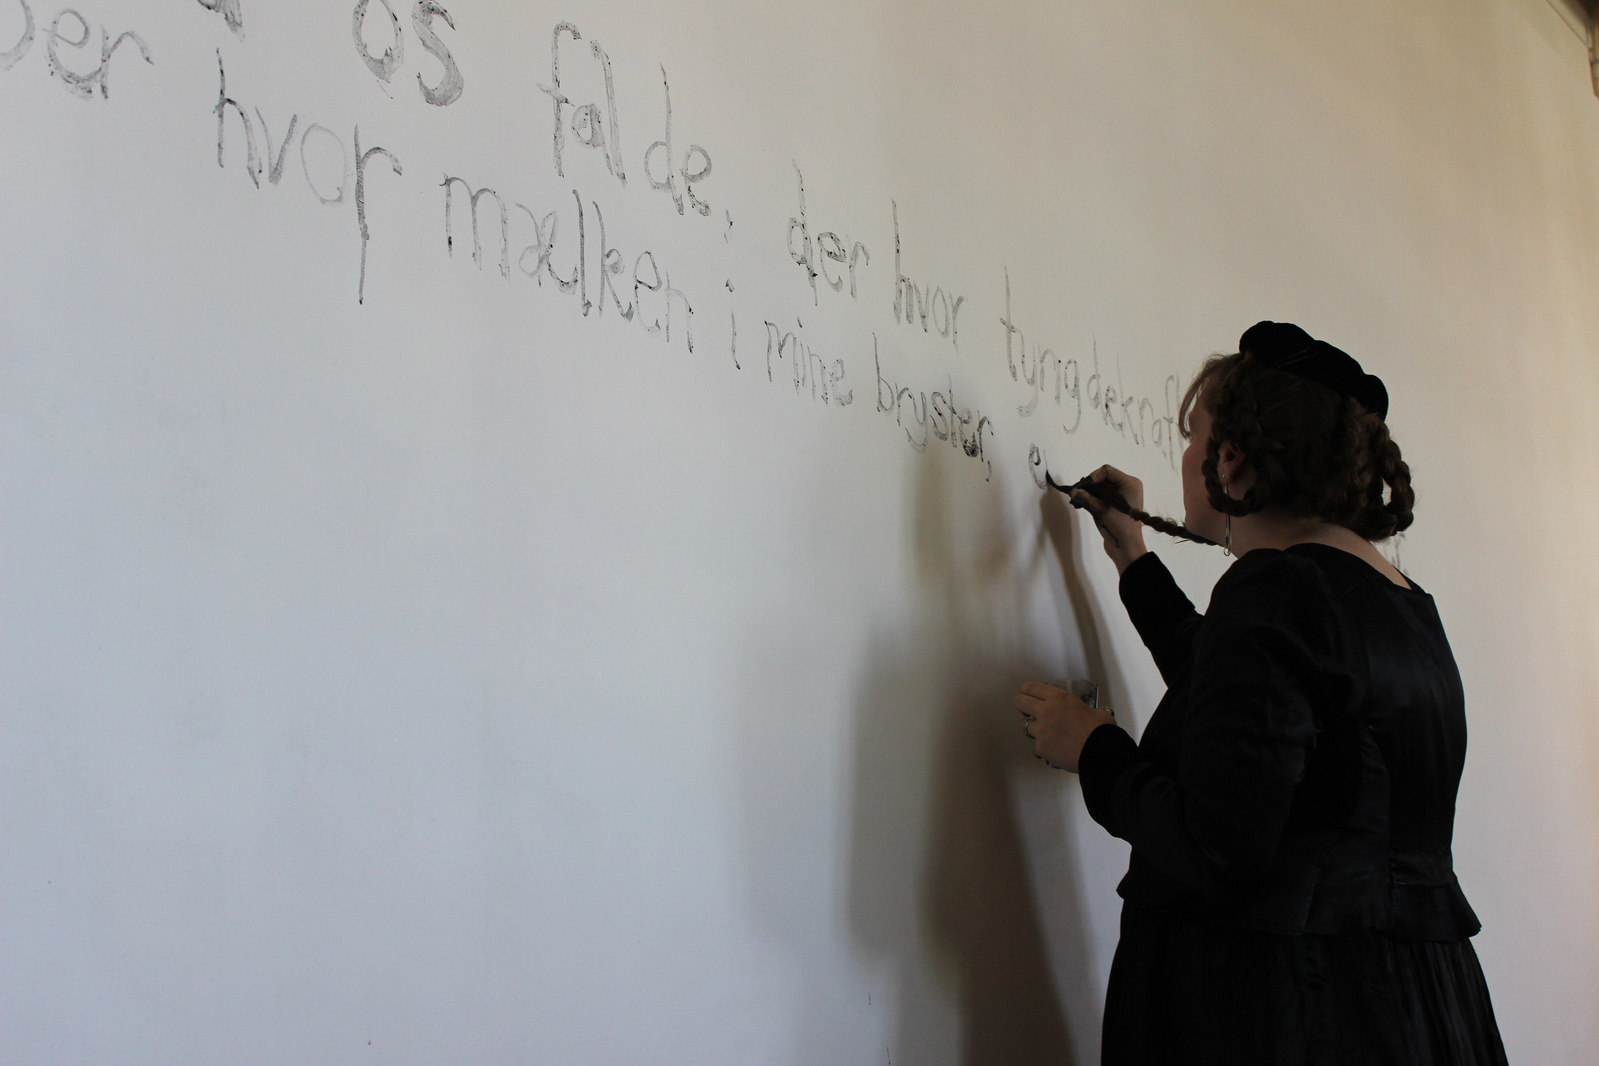 os falde, der hvor tyngdekraft
der hvor mælken i mine bryster, e